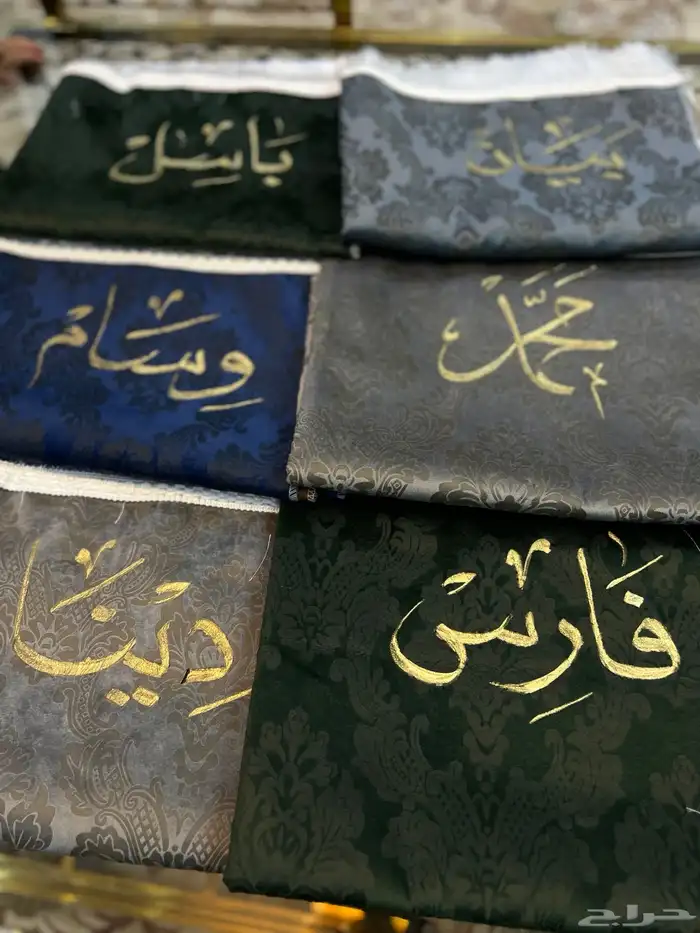 بيان
بَاسِل
محَمَّد
وِسَام
فَارِس
دِينَا
حراج